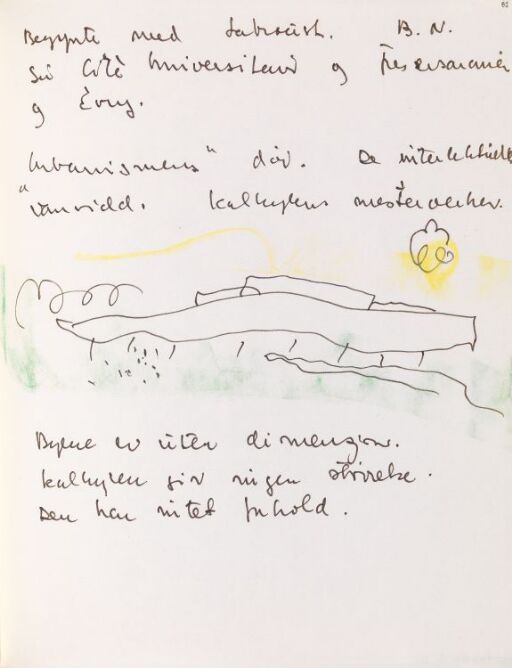 61
Begynte med B.N.
Så Cité Universitaire og
og Évry.
"Urbanismens" død. De intellektuelle
"vanvidd. Kalkylens mesterverker.
Byene er uten dimensjon.
Kalkylen gir ingen størrelse.
Den har intet Inhold.